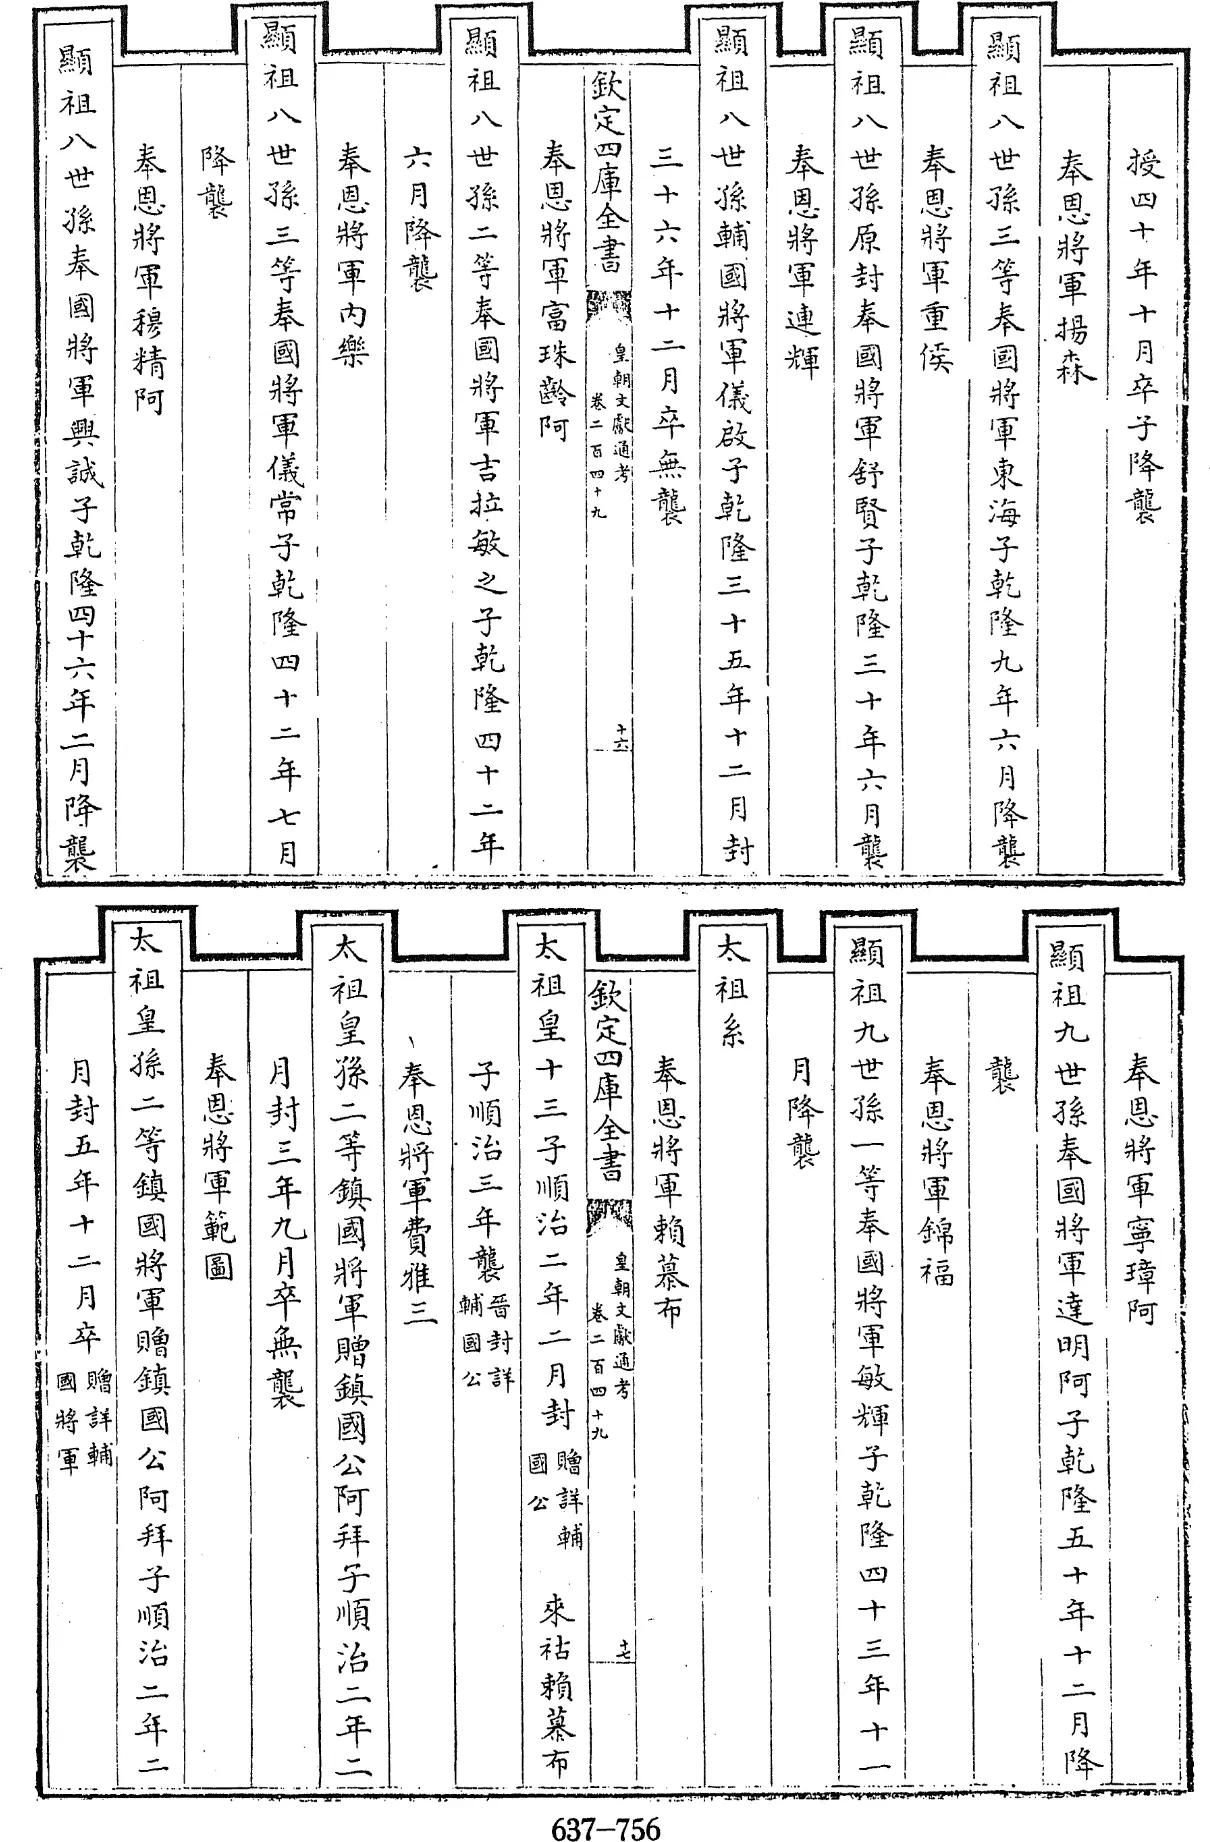 授四十年十月卒子降襲
奉恩將軍揚森
顯祖八世孫三等奉國將軍東海子乾隆九年六月降襲
奉恩將軍重俟
顯祖八世孫原封奉國將軍舒賢子乾隆三十年六月襲
奉恩將軍連輝
顯祖八世孫輔國將軍儀啟子乾隆三十五年十二月封
三十六年十二月卒無襲
欽定四庫全書
皇朝文獻通考
卷二百四十九
十六
奉恩將軍富珠齡阿
顯祖八世孫二等奉國將軍吉拉敏之子乾隆四十二年
六月降襲
奉恩將軍內樂
顯祖八世孫三等奉國將軍儀常子乾隆四十二年七月
降襲
奉恩將軍穆精阿
顯祖八世孫奉國將軍興誠子乾隆四十六年二月降襲
奉恩將軍寧璋阿
顯祖九世孫奉國將軍達明阿子乾隆五十年十二月降
襲
奉恩將軍錦福
顯祖九世孫一等奉國將軍敏輝子乾隆四十三年十一
月降襲
太祖系
奉恩將軍賴慕布
欽定四庫全書
皇朝文獻通考
卷二百四十九
十七
太祖皇十三子順治二年二月封贈詳輔國公 來祜賴慕布
子順治三年襲晉封詳輔國公
奉恩將軍費雅三
太祖皇孫二等鎮國將軍贈鎮國公阿拜子順治二年二
月封三年九月卒無襲
奉恩將軍範圖
太祖皇孫二等鎮國將軍贈鎮國公阿拜子順治二年二
月封五年十二月卒贈詳輔國將軍
637-756